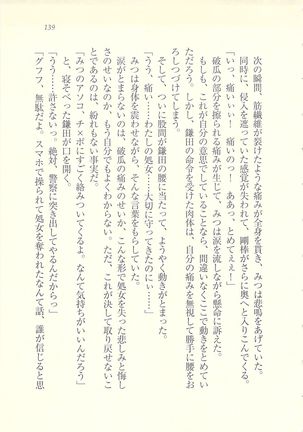 139
次の瞬間、筋繊維が裂けたような痛みが全身を貫き、みつは悲鳴をあげていた。
同時に、侵入を遮っていた感覚が失われて、剛棒がさらに奥へと入りこんでくる。
「いっ、痛いぃぃ! 痛いのっ! ああっ、とめてぇぇ!」
破瓜の部分が擦られる痛みが生じて、みつは涙を流しながら懸命に訴えた。
もしも、これが自分の意思でしていることなら、間違いなくここで動きをとめてい
ただろう。しかし、鎌田の命令を受けた肉体は、自分の痛みを無視して勝手に腰をお
ろしつづけてしまう。
そして、ついに股間が鎌田の腰に当たって、ようやく動きがとまった。
「うう、痛い……わたしの処女……大切に守ってきたのにぃ……」
みつは身体を震わせながら、そんな言葉をもらしていた。
涙がとまらないのは、破瓜の痛みのせいか、こんな形で処女を失った悲しみと悔し
さのせいなのか、もう自分でもよくわからない。ただ、これが決して取り戻せないこ
とであるのは、紛れもない事実だ。
「みつのアソコ、チ×ポにすごく絡みついてくるよ。なんて気持ちがいいんだろう」
と、寝そべった鎌田が口を開く。
「うう……許さないっ。絶対、警察に突き出してやるんだからっ」
「グフフ、無駄だよ。スマホで操られて処女を奪われたなんて話、誰が信じると思